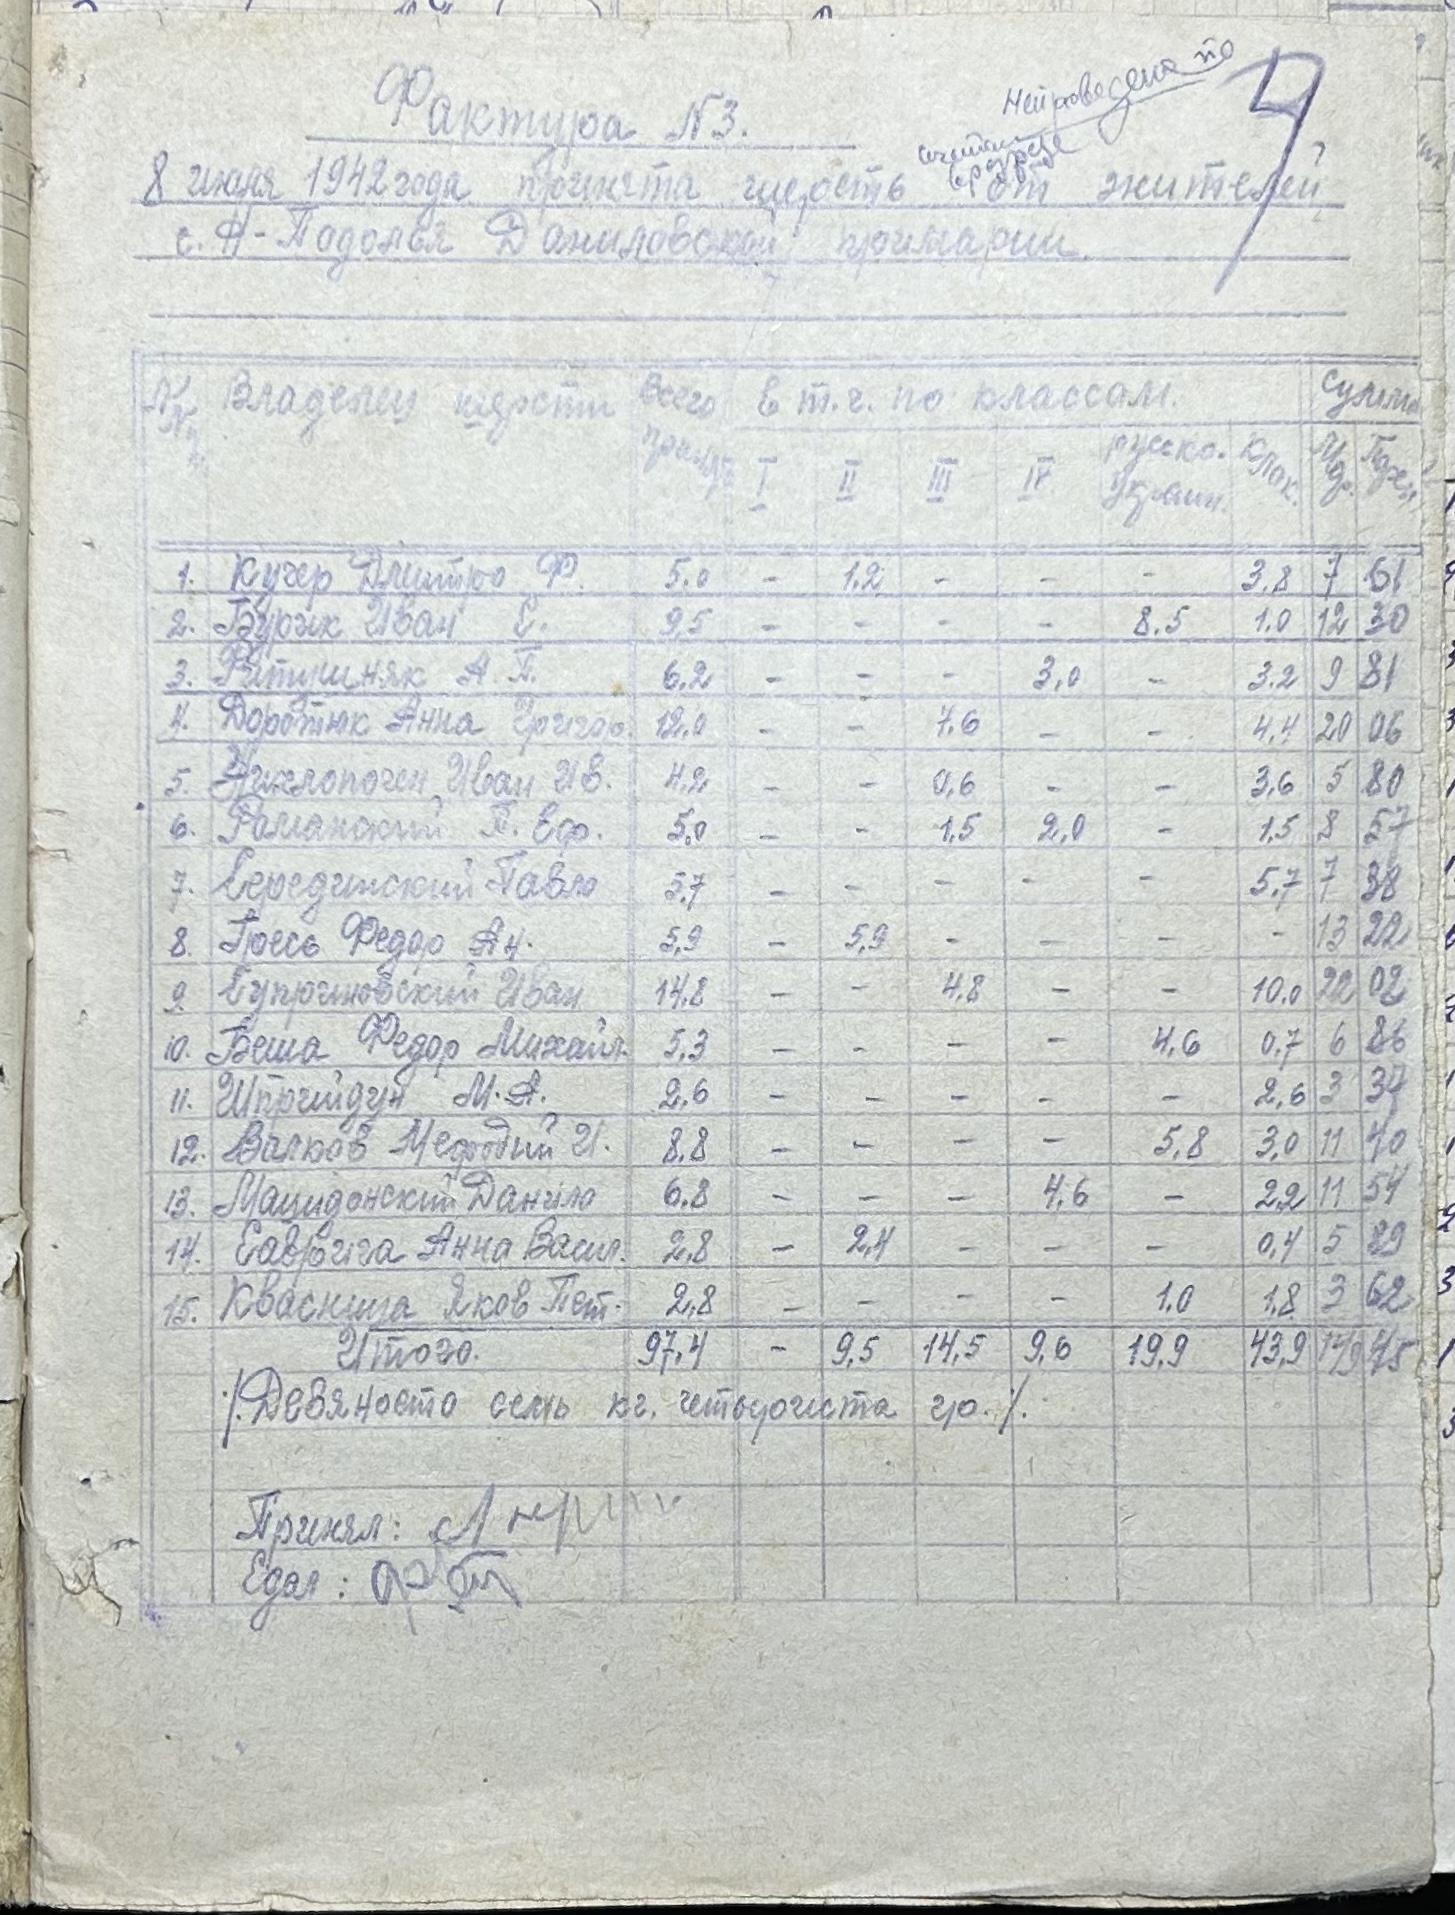 Непроведена по
Фактура №3.
8 июля 1942 года принята шерсть от жителей
с. Н-Подолья Даниловской примарии.
№№ Владелец шерсти Всего принято В т.ч. по классам. Сумма
I II III IV русско. украин. Клок. Мар. Пфен.
1. Кучер Дмитро Ф. 5.0 - 1.2 - - - 3.8 7 61
2. Бурик Иван Е. 9,5 - - - - 8.5 1.0 12 30
3. А. П. 6,2 - - - 3,0 - 3.2 9 81
4. Доротюк Анна Григор. 12,0 - - 7.6 - - 4,4 20 06
5. Иван Ив. 4,2 - - 0,6 - - 3,6 5 80
6. Романский П. Еф. 5,0 - - 1.5 2,0 - 1.5 8 57
7. Серединский Павло 5,7 - - - - - 5,7 7 38
8. Гресь Федор Ан. 5,9 - 5,9 - - - - 13 22
9. Супрыновский Иван 14,8 - - 4,8 - - 10,0 22 02
10. Беша Федор Михайл. 5,3 - - - - 4,6 0,7 6 86
11. М. А. 2,6 - - - - - 2,6 3 37
12. Валков Мефодий И. 8,8 - - - - 5,8 3,0 11 40
13. Мацидонский Данило 6.8 - - - 4,6 - 2,2 11 54
14. Анна Васил. 2,8 - 2,4 - - - 0,4 5 89
15. Квасница Яков Пет. 2,8 - - - - 1.0 1,8 3 62
Итого. 97,4 - 9,5 14,5 9,6 19,9 43,9 149 45
/.Девяносто семь кг. четыриста гр./.
Принял:
Сдал: